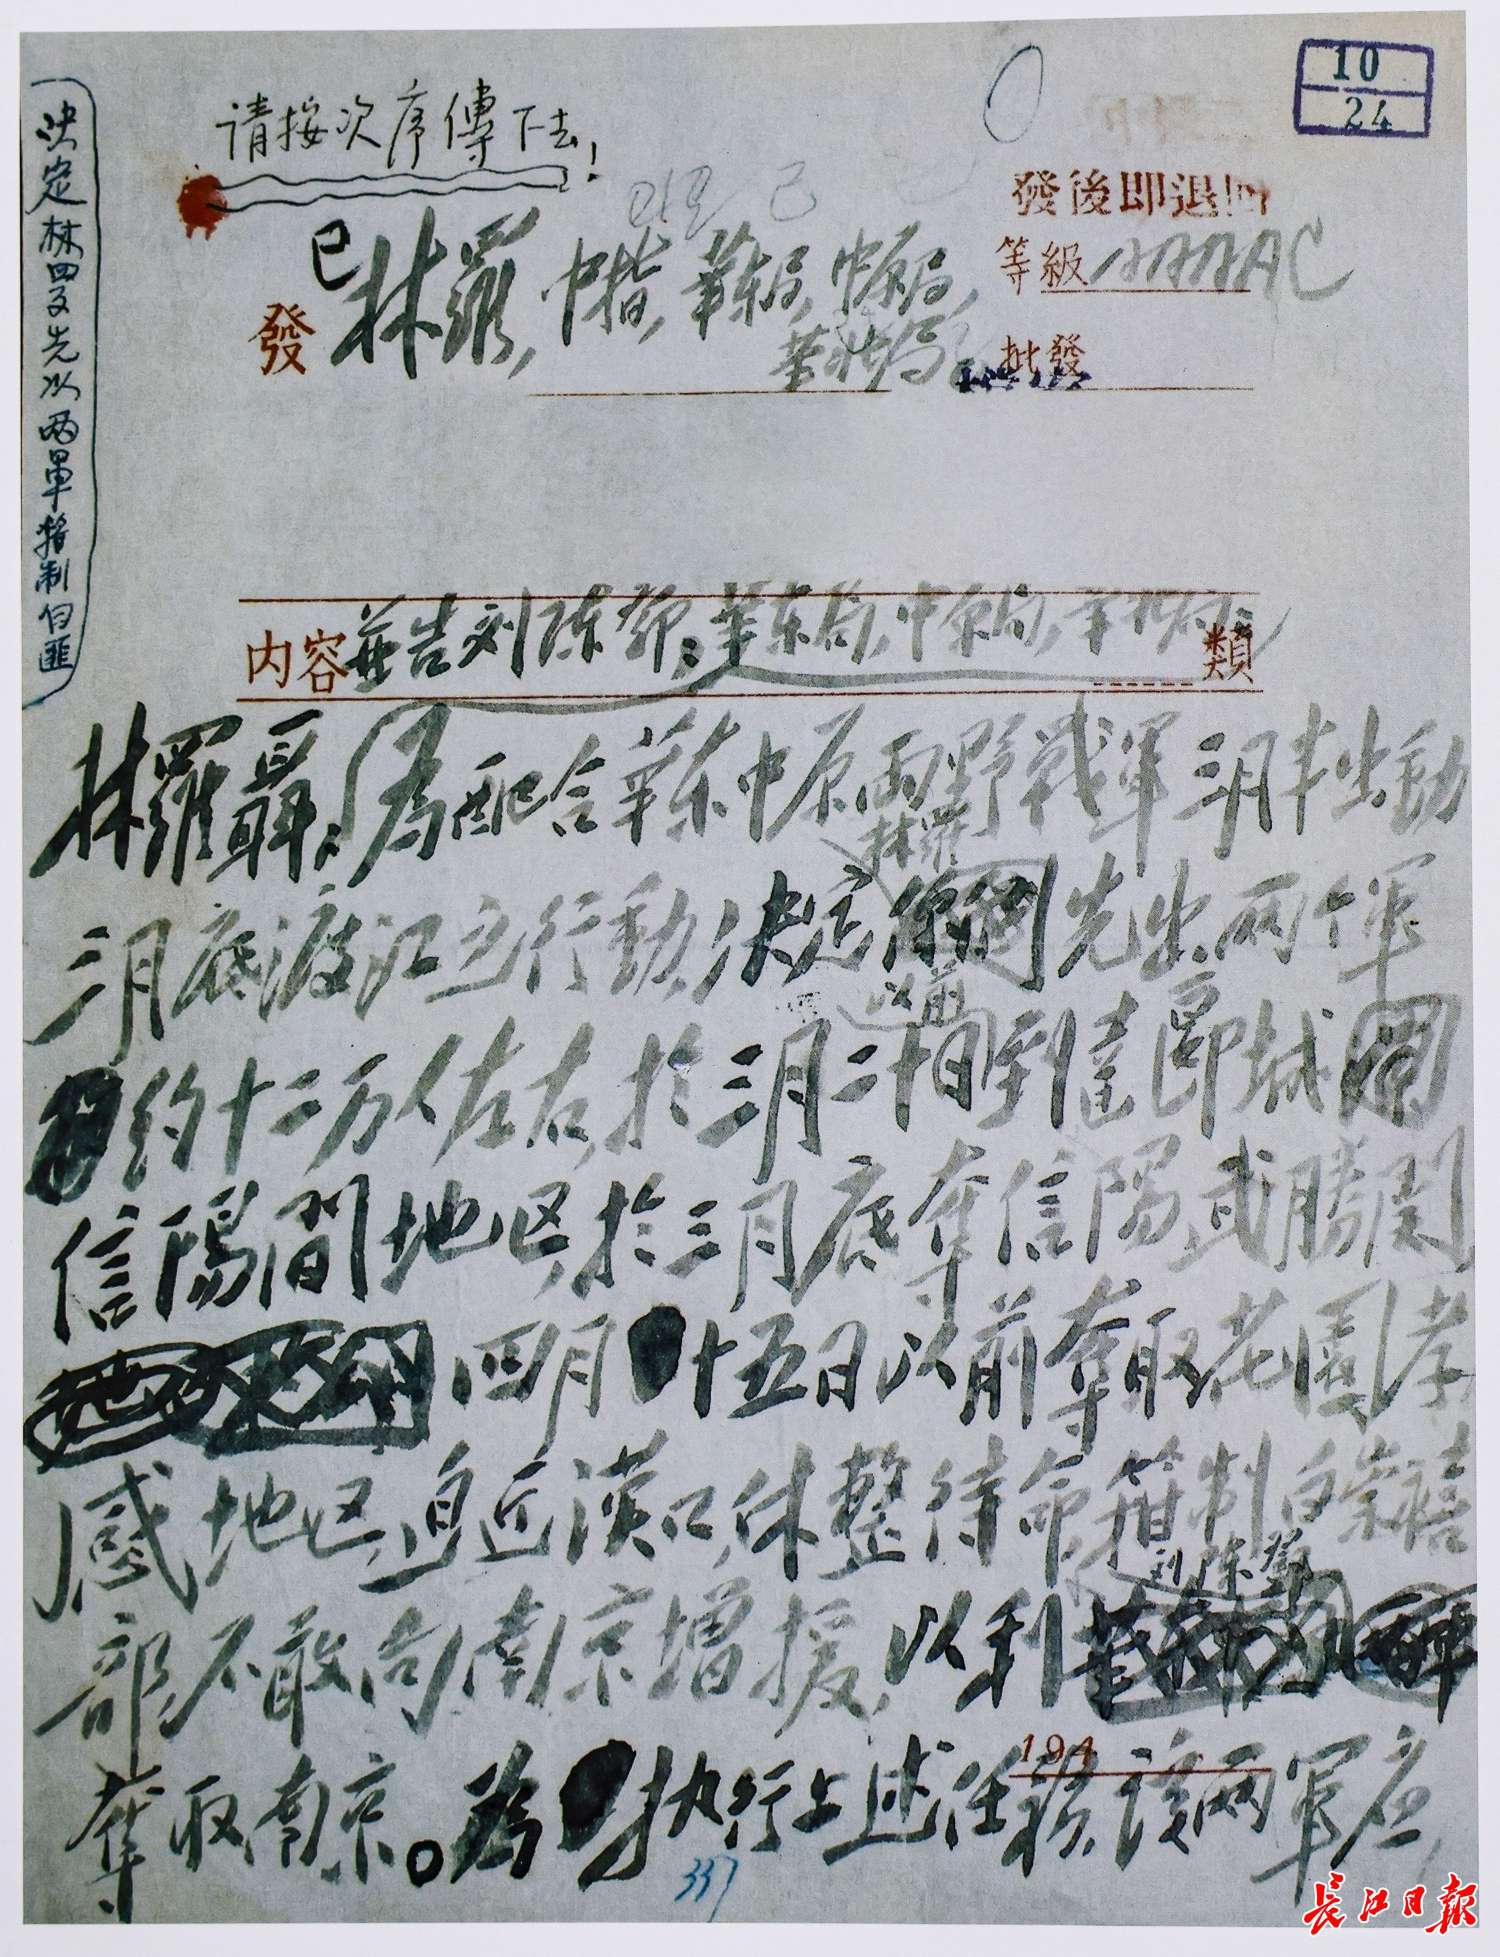 10
24
请按次序傳下去！
發後即退回
等級 AAAAC
已
發 林羅，中指，華东局，中原局，
華北局
批發
决定林罗先以两軍箝制白匪
内容 並告刘陈鄧：華东局，中原局，華北局： 類
林羅聶：為配合華东中原两野戰軍三月半出動
三月底渡江之行動，决定林羅先出两个軍
約十二万人左右，於三月二十日以前到達郾城
信陽間地区，於三月底奪信陽武勝関
四月十五日以前奪取花園孝
感地区，迫近漢口，休整待命，箝制白崇禧
部，不敢向南京增援，以利刘陈鄧
奪取南京。為执行上述任務，該两軍应
194
337
長江日報